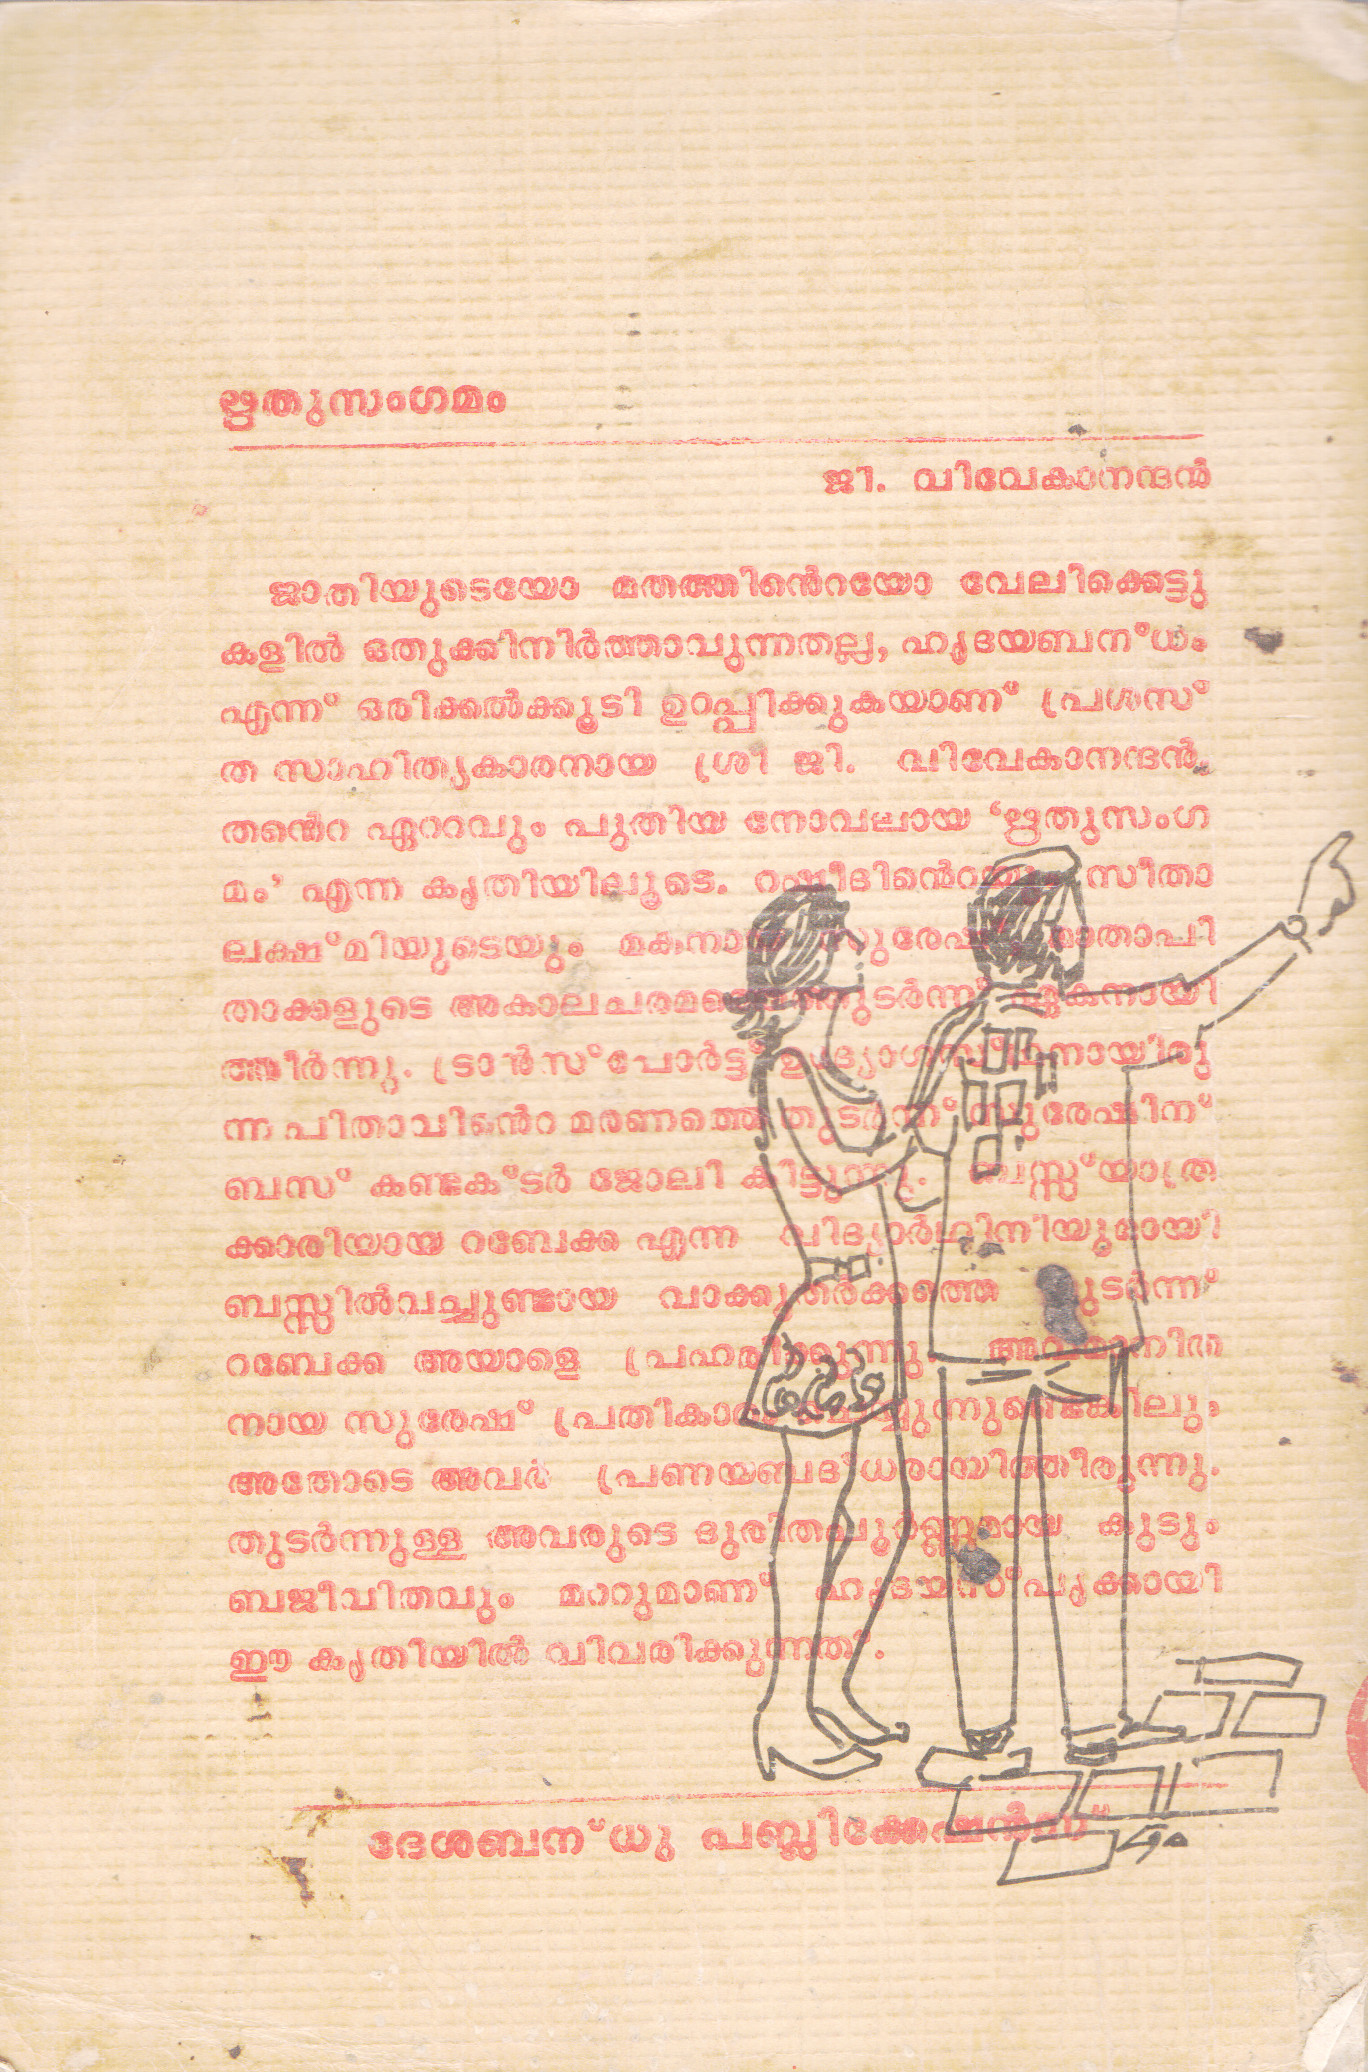 ഋതുസംഗമം
ജി. വിവേകാനന്ദൻ
ജാതിയുടെയോ മതത്തിൻെറയോ വേലിക്കെട്ടു
കളിൽ ഒതുക്കിനിർത്താവുന്നതല്ല, ഹൃദയബന്ധം
എന്ന് ഒരിക്കൽക്കൂടി ഉറപ്പിക്കുകയാണ് പ്രശസ്
ത സാഹിത്യകാരനായ ശ്രീ ജി. വിവേകാനന്ദൻ,
തൻെറ ഏററവും പുതിയ നോവലായ ‘ഋതുസംഗ
മം’ എന്ന കൃതിയിലൂടെ. റഷീദിൻെറയും സീതാ
ലക്ഷ്മിയുടെയും മകനായ സുരേഷ് മാതാപി
താക്കളുടെ അകാലചരമത്തെത്തുടർന്ന് ഏകനായി
ത്തീർന്നു. ട്രാൻസ്പോർട്ട് ഉദ്യോഗസ്ഥനായിരു
ന്ന പിതാവിൻെറ മരണത്തെ തുടർന്ന് സുരേഷിന്
ബസ് കണ്ടക്ടർ ജോലി കിട്ടുന്നു. ബസ്സ്‌യാത്ര
ക്കാരിയായ റബേക്ക എന്ന വിദ്യാർഥിനിയുമായി
ബസ്സിൽവച്ചുണ്ടായ വാക്കുതർക്കത്തെ തുടർന്ന്
റബേക്ക അയാളെ പ്രഹരിക്കുന്നു. അവമാനിത
നായ സുരേഷ് പ്രതികാരം ചെയ്യുന്നുണ്ടെങ്കിലും,
അതോടെ അവർ പ്രണയബദ്ധരായിത്തീരുന്നു.
തുടർന്നുള്ള അവരുടെ ദുരിതപൂർണ്ണമായ കുടും
ബജീവിതവും മററുമാണ് ഹൃദയസ്പൃക്കായി
ഈ കൃതിയിൽ വിവരിക്കുന്നത്.
ദേശബന്ധു പബ്ലിക്കേഷൻസ്